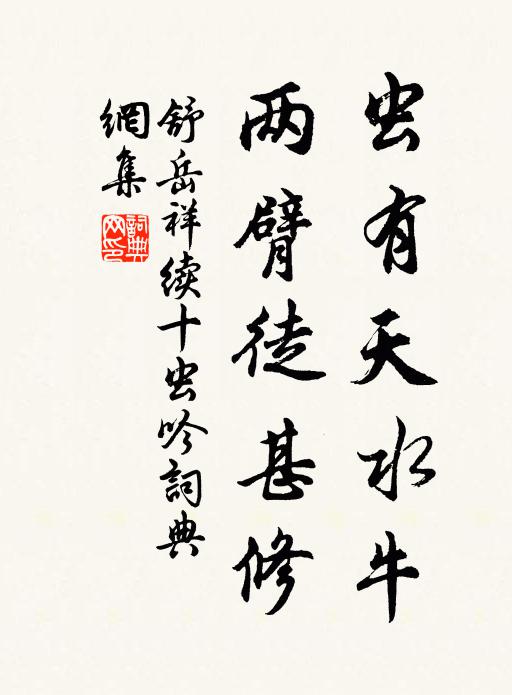 虫有天水牛
两臂徒甚修
舒岳祥续十虫吟詞典
網集
詞典网印